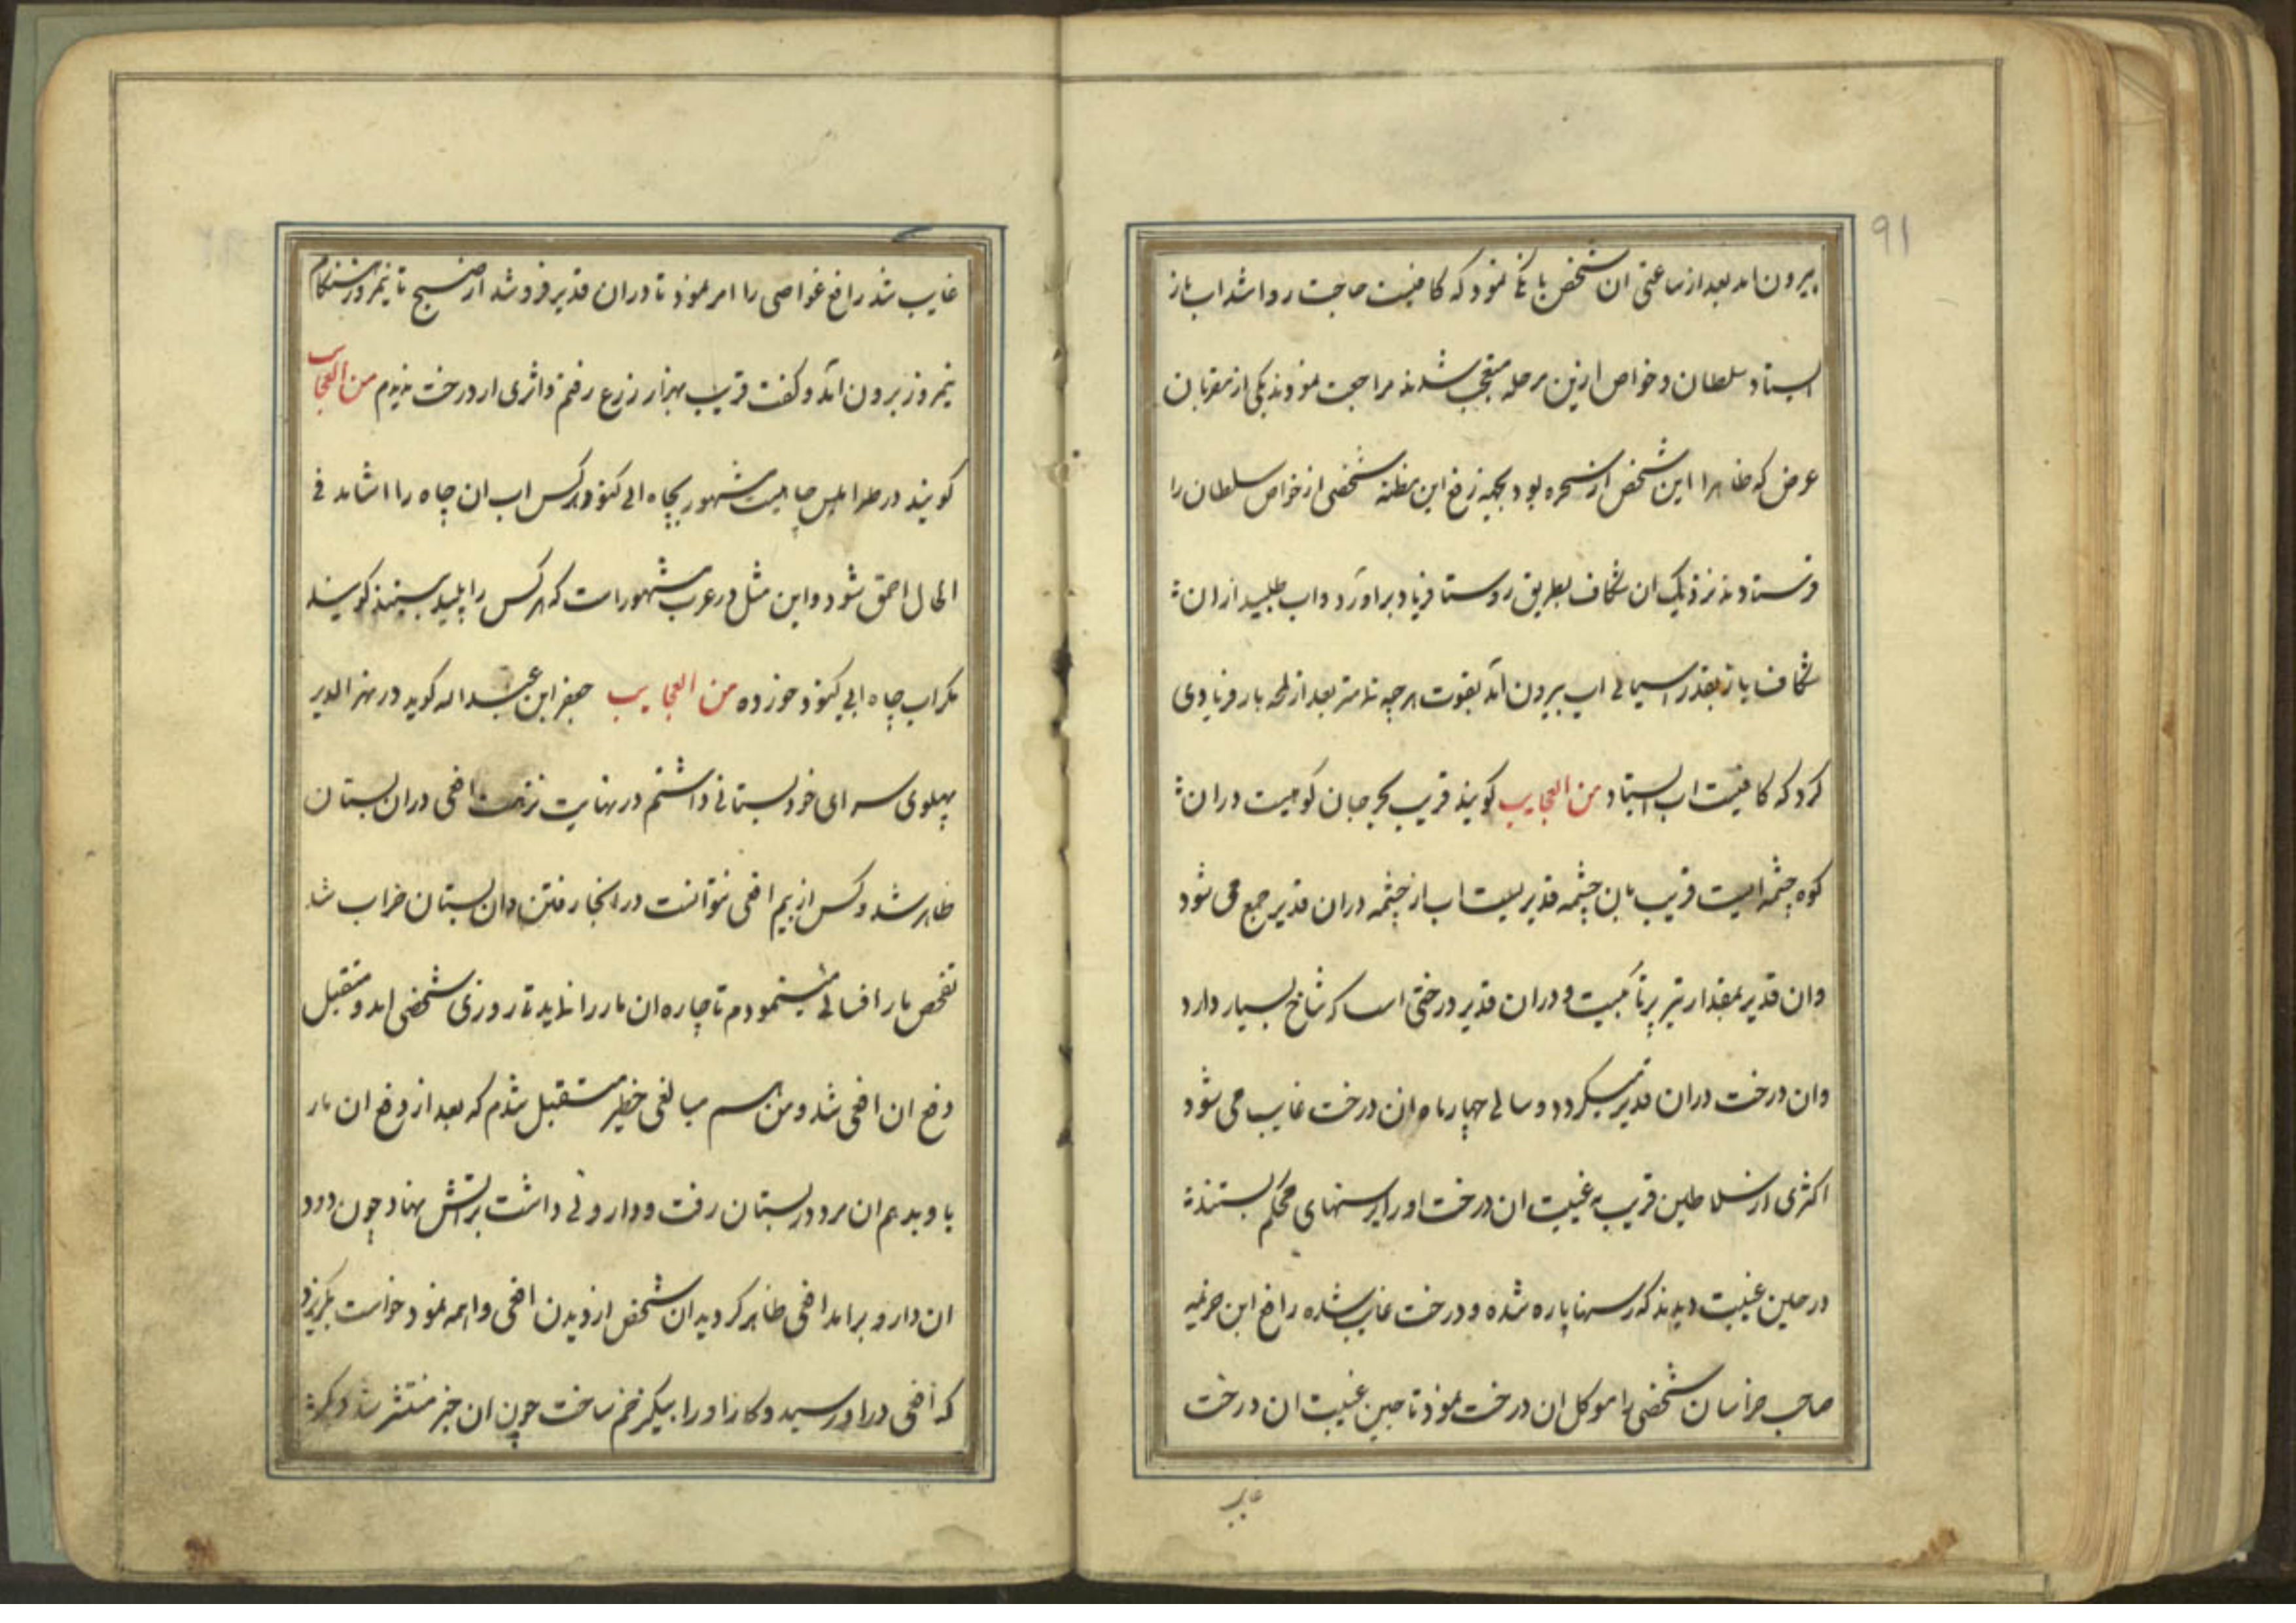 ۹۱
بیرون امد بعد از ساعتی ان شخص بانکی نمود که کافیست حاجت روا شد اب باز
ایستاد سلطان و خواص ازین مرحله متعجب شدند مراجعت نمودند یکی از مقربان
عرض که ظاهرا این شخص از سحره بود بجهة رفع این مظنه شخصی از خواص سلطان را
فرستادند نزدیک ان شکاف بطریق روستا فریاد براورد و اب طلبید از ان
شکاف باز بقدر اسیائی اب بیرون آمد بقوت هر چه تمامتر بعد از لمحه باز فریادی
کرد که کافیست اب ایستاد من العجایب کویند قریب بجرجان کوهیست در ان
کوه چشمه ایست قریب بان چشمه قدیریست اب از چشمه در ان قدیر جمع می شود
وان قدیر بمقدار تیر پرتابیست و در ان قدیر درختی است که شاخ بسیار دارد
وان درخت در ان قدیر میکردد و سالی چهار ماه ان درخت غایب می شود
اکثری از سلاطین قریب بغیبت ان درخت او را برسنهای محکم بستند
در حین غیبت دیدند که رسنها پاره شده و درخت غایب شده رافع ابن هرثمه
صاحب خراسان شخصی را موکل ان درخت نمود تا حین غیبت ان درخت
غایب
غایب شد رافع غواصی را امر نمود تا در ان قدیر فرو شد از صبح تا نیمروز هنکام
نیمروز برون آمد و کفت قریب بهزار زرع رفتم و اثری از درخت ندیدم من العجایب
کویند در طرابلس چاهیست مشهور بچاه ابی کنود هر کس اب ان چاه را اشامد فی
الحال احمق شود و این مثل در عرب مشهور است که هر کس را پلید ببینند کویند
مکر اب چاه ابی کنود خورده من العجایب جعفر ابن عبد اله کوید در نهر الدیر
پهلوی سرای خود بستانی داشتم در نهایت نزهت افعی در ان بستان
ظاهر شد و کس از بیم افعی نتوانست در انجا رفتن و ان بستان خراب شد
تفحص مار افسائی مینمودم تا چاره ان مار را نماید تا روزی شخصی امد و متقبل
دفع ان افعی شد و من هم مبالغی خطیر متقبل شدم که بعد از دفع ان مار
باو بدهم ان مرد در بستان رفت و داروئی داشت بر اتش نهاد چون دود
ان دارو برامد افعی ظاهر کردید ان شخص از دیدن افعی واهمه نمود خواست بکریزد
که افعی در او رسید و کار او را بیک زخم ساخت چون ان خبر منتشر شد دیکر